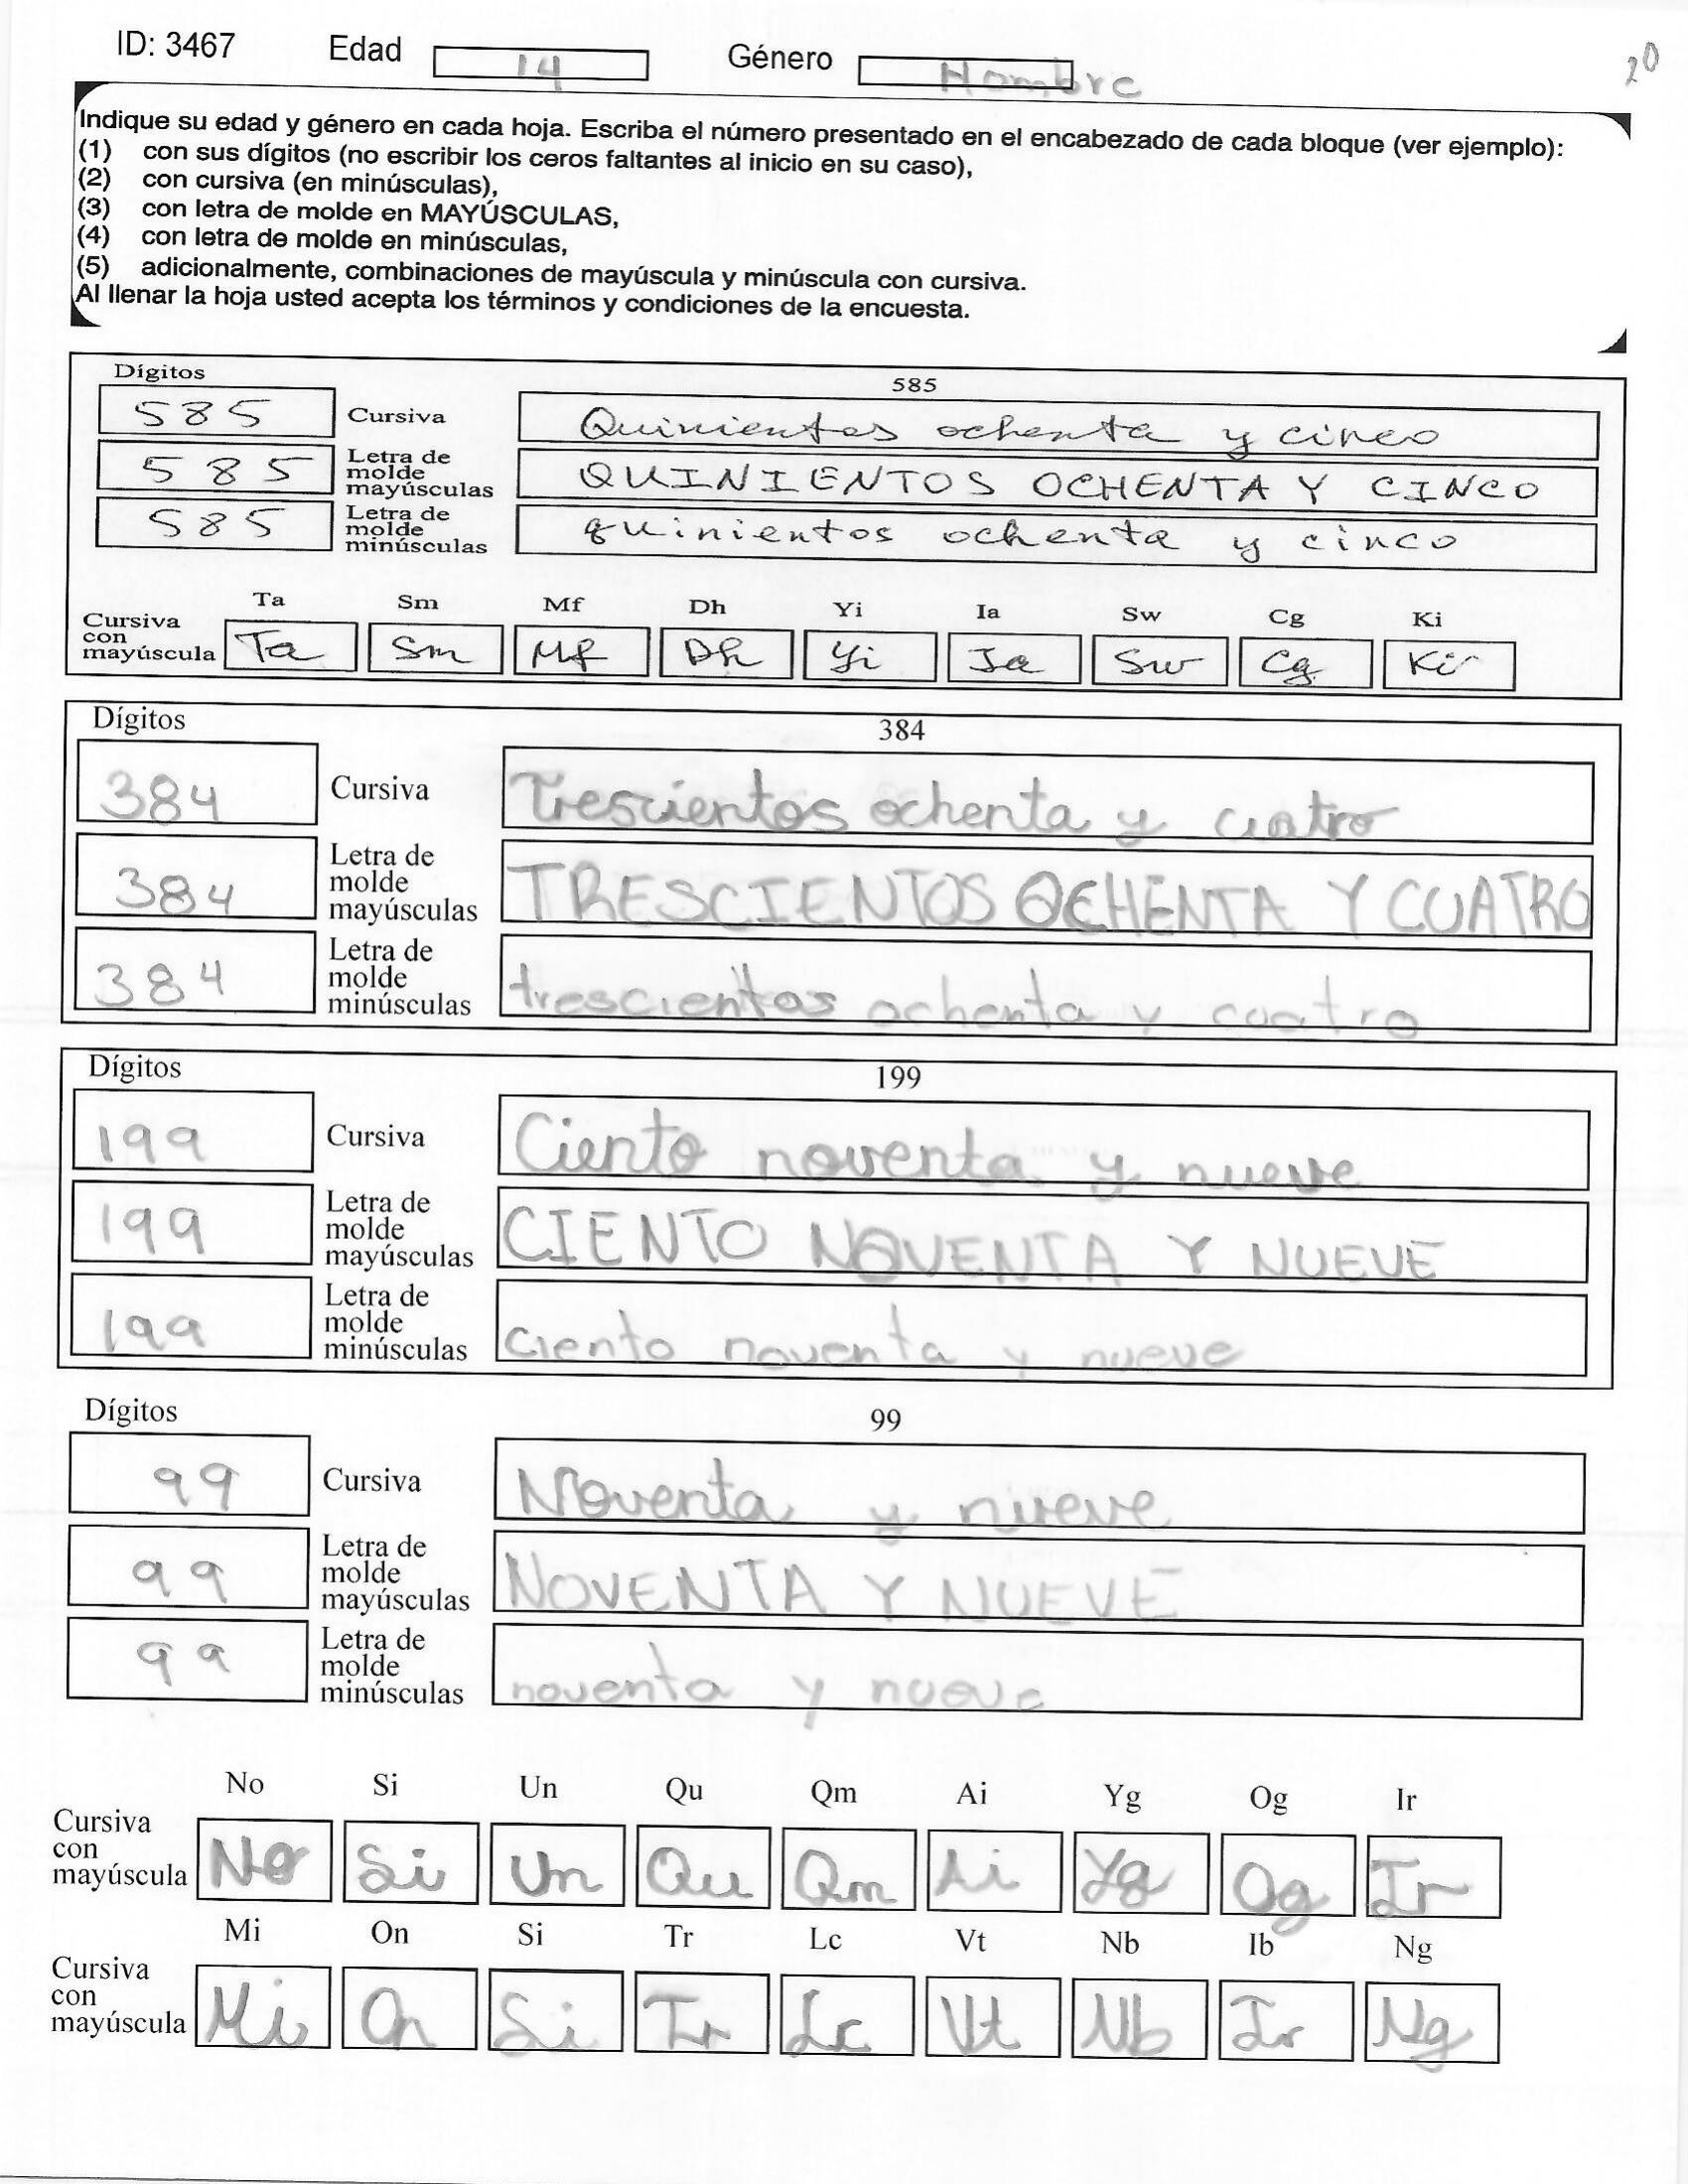 ID: 3467 Edad 14 Género Hombre 20
Indique su edad y género en cada hoja. Escriba el número presentado en el encabezado de cada bloque (ver ejemplo):
(1) con sus dígitos (no escribir los ceros faltantes al inicio en su caso),
(2) con cursiva (en minúsculas),
(3) con letra de molde en MAYÚSCULAS,
(4) con letra de molde en minúsculas,
(5) adicionalmente, combinaciones de mayúscula y minúscula con cursiva.
Al llenar la hoja usted acepta los términos y condiciones de la encuesta.
Dígitos 585
585 Cursiva Quinientos ochenta y cinco
585 Letra de molde mayúsculas QUINIENTOS OCHENTA Y CINCO
585 Letra de molde minúsculas quinientos ochenta y cinco
Ta Sm Mf Dh Yi Ia Sw Cg Ki
Cursiva con mayúscula Ta Sm Mf Dh Yi Ia Sw Cg Ki
Dígitos 384
384 Cursiva Trescientos ochenta y cuatro
384 Letra de molde mayúsculas TRESCIENTOS OCHENTA Y CUATRO
384 Letra de molde minúsculas trescientos ochenta y cuatro
Dígitos 199
199 Cursiva Ciento noventa y nueve
199 Letra de molde mayúsculas CIENTO NOVENTA Y NUEVE
199 Letra de molde minúsculas ciento noventa y nueve
Dígitos 99
99 Cursiva Noventa y nueve
99 Letra de molde mayúsculas NOVENTA Y NUEVE
99 Letra de molde minúsculas noventa y nueve
No Si Un Qu Qm Ai Yg Og Ir
Cursiva con mayúscula No Si Un Qu Qm Ai Yg Og Ir
Mi On Si Tr Lc Vt Nb Ib Ng
Cursiva con mayúscula Mi On Si Tr Lc Vt Nb Ir Ng